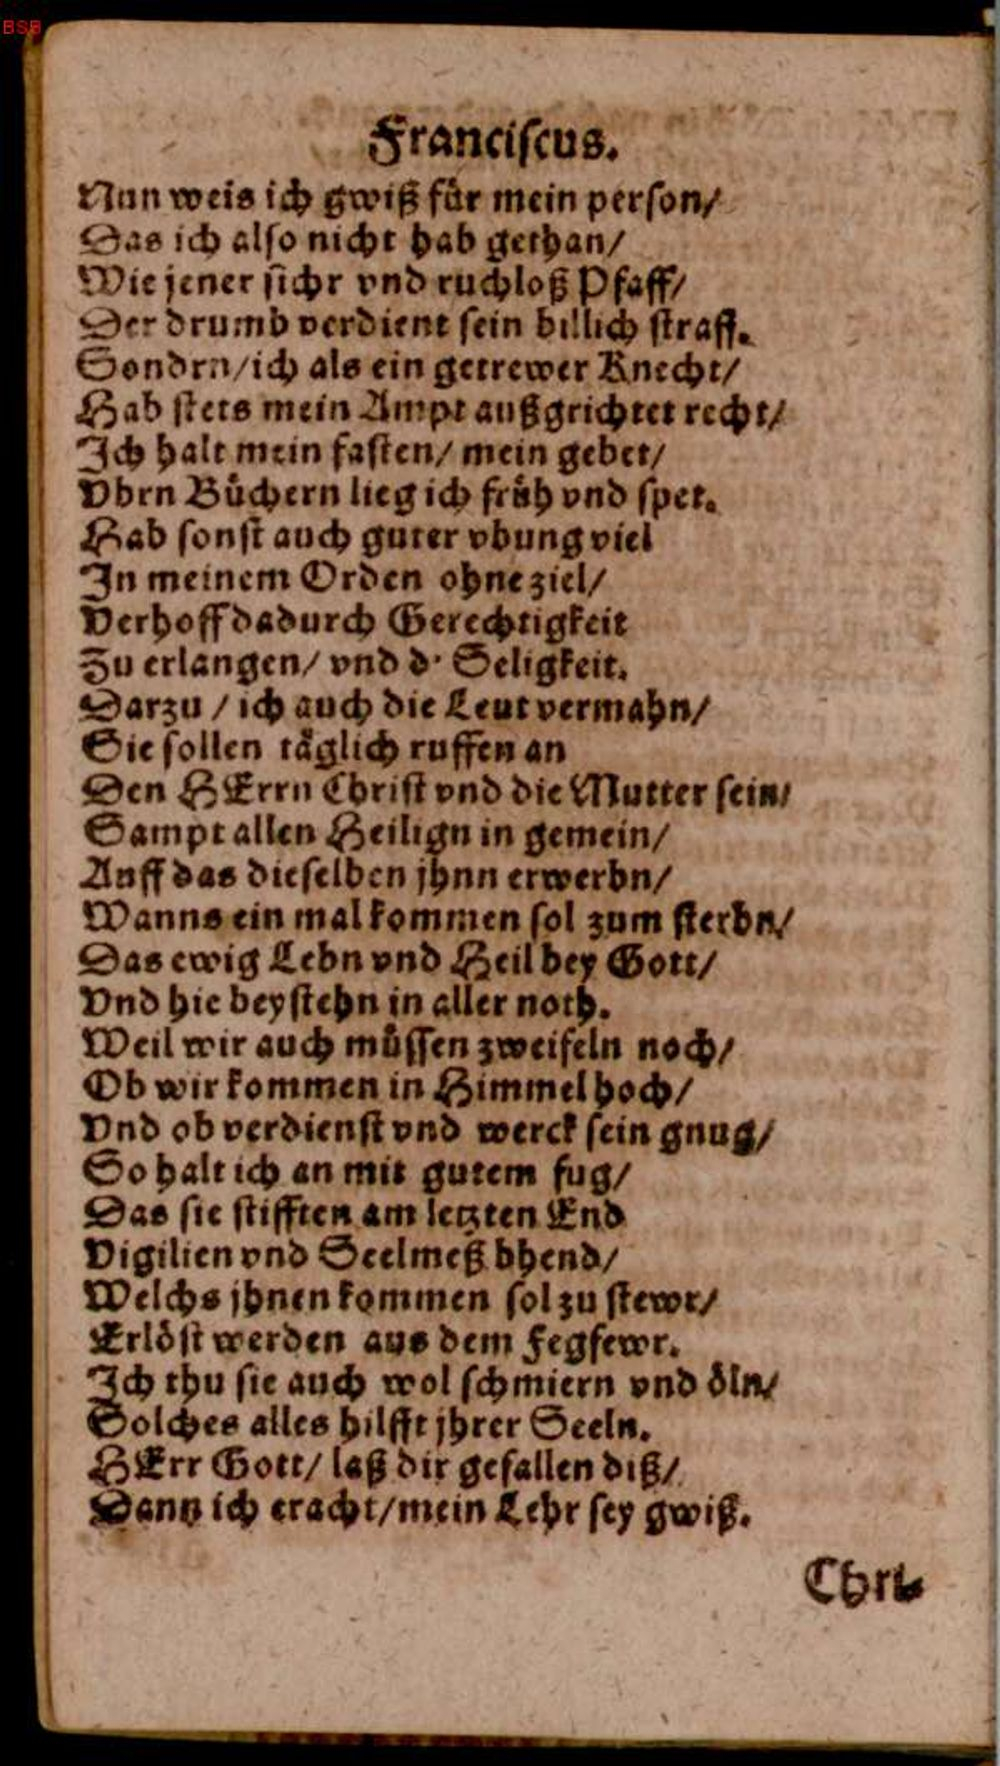 BSB
Franciſcus.
Nun weis ich gwiß für mein perſon/
Das ich alſo nicht hab gethan/
Wie jener ſichr vnd ruchloß Pfaff/
Der drumb verdient ſein billich ſtraff.
Sondrn/ich als ein getrewer Knecht/
Hab ſtets mein Ampt außgrichtet recht/
Ich halt mein faſten/ mein gebet/
Vbrn Büchern lieg ich früh vnd ſpet.
Hab ſonſt auch guter vbung viel
In meinem Orden ohne ziel/
Verhoff dadurch Gerechtigkeit
Zu erlangen/ vnd d' Seligkeit.
Darzu / ich auch die Leut vermahn/
Sie ſollen täglich ruffen an
Den HErrn Chriſt vnd die Mutter ſein/
Sampt allen Heilign in gemein/
Auff das dieſelben jhnn erwerbn/
Wanns ein mal kommen ſol zum ſterbn/
Das ewig Lebn vnd Heil bey Gott/
Vnd hie beyſtehn in aller noth.
Weil wir auch müſſen zweifeln noch/
Ob wir kommen in Himmel hoch/
Vnd ob verdienſt vnd werck ſein gnug/
So halt ich an mit gutem fug/
Das ſie ſtifften am letzten End
Vigilien vnd Seelmeß bhend/
Welchs jhnen kommen ſol zu ſtewr/
Erlöſt werden aus dem Fegfewr.
Ich thu ſie auch wol ſchmiern vnd öln/
Solches alles hilfft jhrer Seeln.
HErr Gott/ laß dir gefallen diß/
Dann ich eracht/mein Lehr ſey gwiß.
Chri-